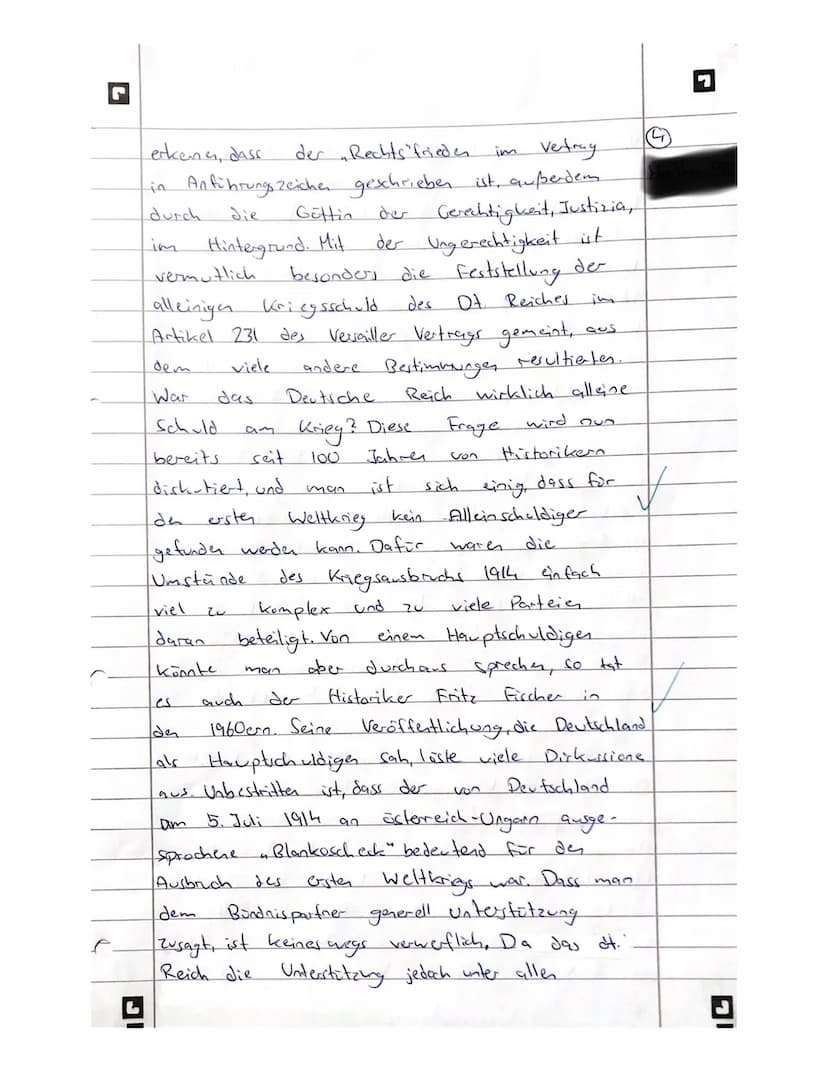 ④
erkennen, dass der „Rechts"frieden im Vertrag
in Anführungszeichen geschrieben ist, außerdem
durch die Göttin der Gerechtigkeit, Justizia,
im Hintergrund. Mit der Ungerechtigkeit ist
vermutlich besonders die Feststellung der
alleinigen Kriegsschuld des Dt. Reiches im
Artikel 231 des Versailler Vertrags gemeint, aus
dem viele andere Bestimmungen resultierten.
War das Deutsche Reich wirklich alleine
Schuld am Krieg? Diese Frage wird nun
bereits seit 100 Jahren von Historikern
diskutiert, und man ist sich einig, dass für
den ersten Weltkrieg kein Alleinschuldiger
gefunden werden kann. Dafür waren die
Umstände des Kriegsausbruchs 1914 einfach
viel zu komplex und zu viele Parteien
daran beteiligt. Von einem Hauptschuldigen
könnte man aber durchaus sprechen, so tat
es auch der Historiker Fritz Fischer in
den 1960ern. Seine Veröffentlichung, die Deutschland
als Hauptschuldigen sah, löste viele Diskussione
aus. Unbestritten ist, dass der von Deutschland
am 5. Juli 1914 an österreich-Ungarn ausge-
sprochene „Blankoscheck" bedeutend für den
Ausbruch des ersten Weltkriegs war. Dass man
dem Bündnispartner generell Unterstützung
zusagt, ist keineswegs verwerflich, Da das dt.
Reich die Unterstützung jedoch unter allen